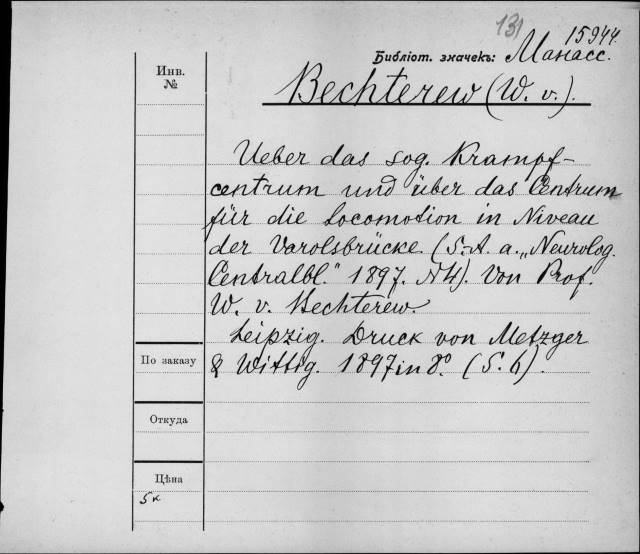 131
15944
Библіот. значекъ: Манасс.
Инв.
№
Bechterew (W. v.).
Ueber das sog. Krampf-
centrum und über das Centrum
für die Locomotion in Niveau
der Varolsbrücke. (S. A. a. „Neurolog.
Centralbl." 1897. N4). Von Prof.
W. v. Bechterew.
Leipzig. Druck von Metzger
По заказу
& Wittig. 1897 in 8º. (S. 6).
Откуда
Цѣна
5к